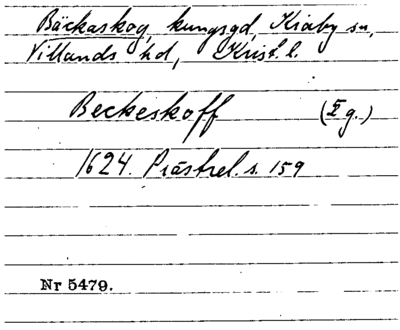 Bäckaskog, kungsgd, Kiaby sn,
Villands hd, Krist. l.
Beckeskoff (I g.)
1624. Prästrel. s. 159
Nr 5479.